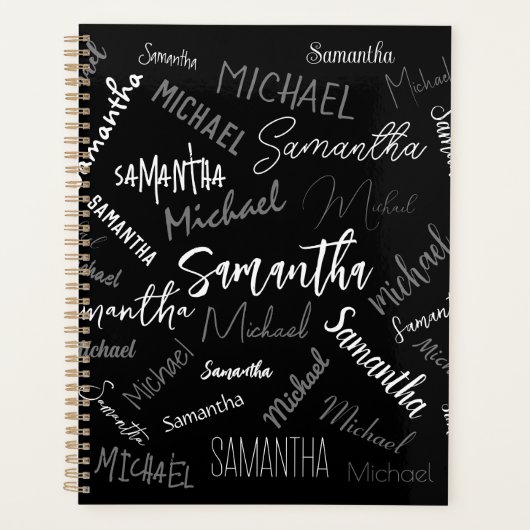 Samantha
Samantha
Michael
MICHAEL
Michael
MICHAEL
Samantha
Samantha
Samantha
SAMANTHA
Michael
Michael
SAMANTHA
Michael
Samantha
Michael
Michael
Samantha
Michael
Samantha
Samantha
Michael
Michael
Samantha
Michael
Samantha
Michael
Samantha
Michael
MICHAEL
SAMANTHA
Michael